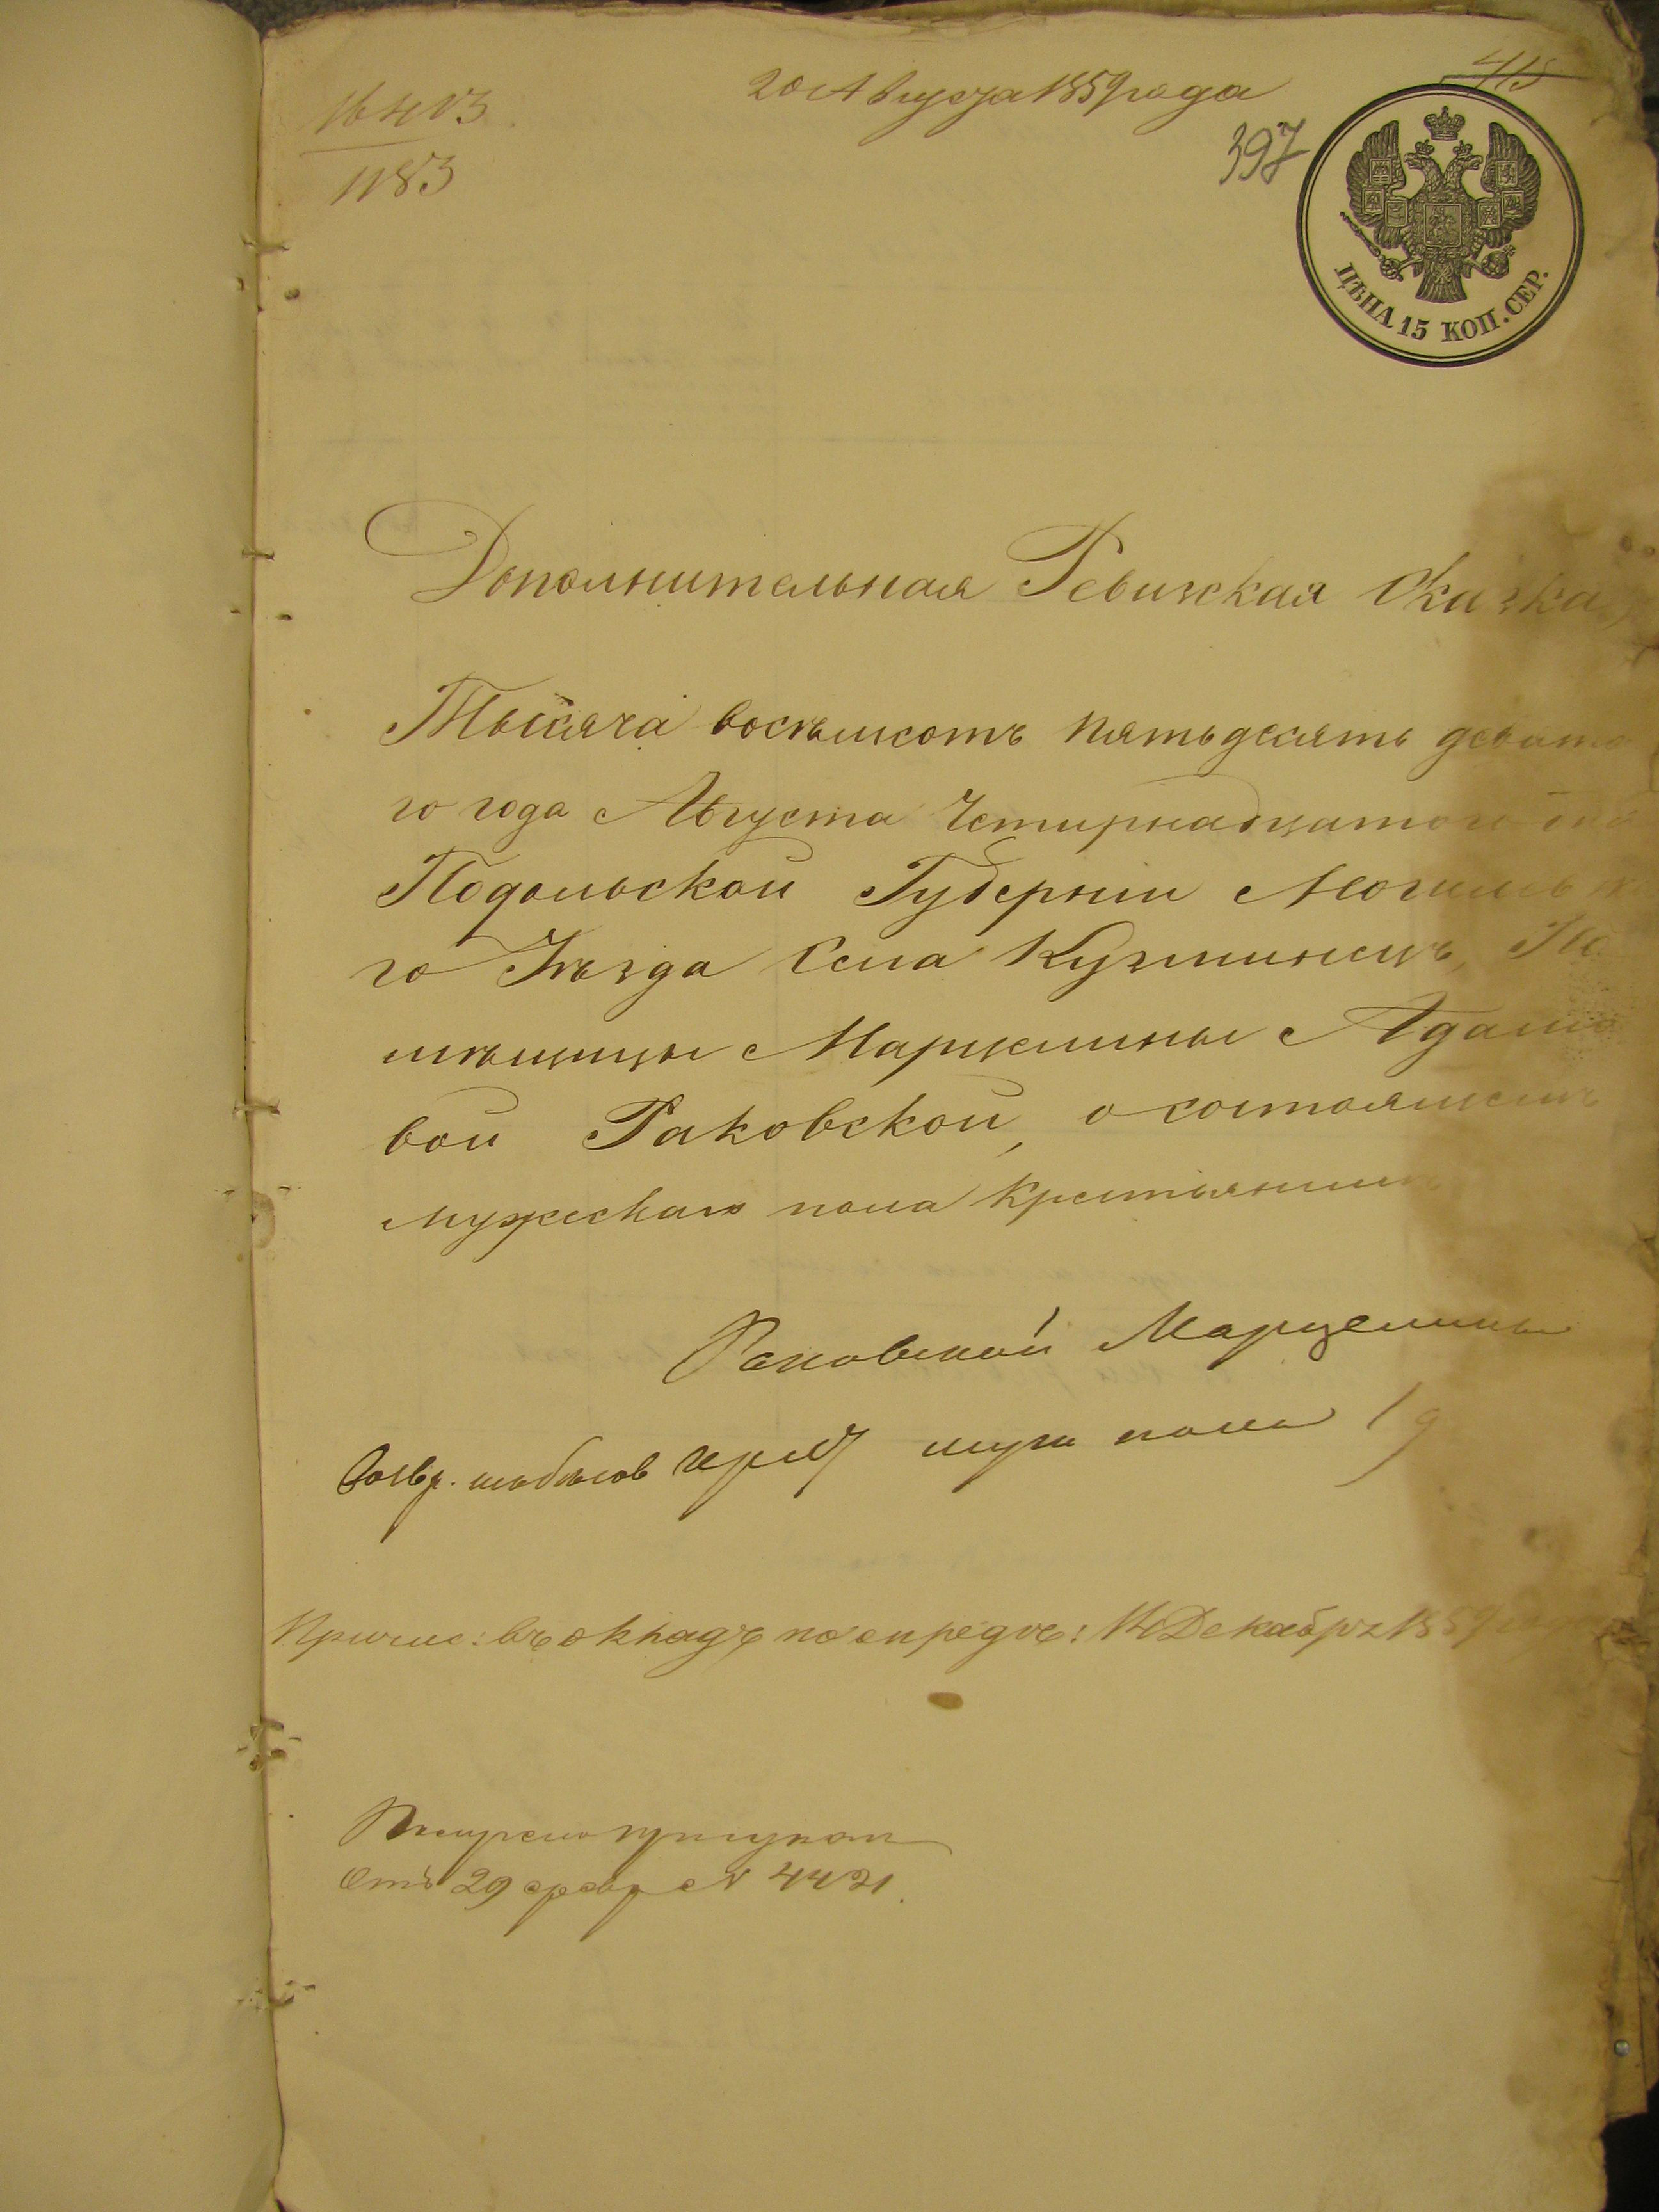 20 Августа 1859 года
415
16403
1183
397
ЦѢНА 15 КОП. СЕР.
Дополнительная Ревизская Сказка,
Тысяча восѣмсотъ пятьдесять девято
го года Августа Четирнадцатого дня
Подольской Губерніи Могилевско
го Уѣзда Села Кузминецъ, По
мѣщицы Марцелины Адамо
вой Раковской, о состоящемъ
мужескаго пола крестьянинѣ
Раковской Марцелины
муж пола 1 д
Причис: въ окладъ по опредѣ: 14 Декабря 1859 года
Отъ 29 февр N 4421.